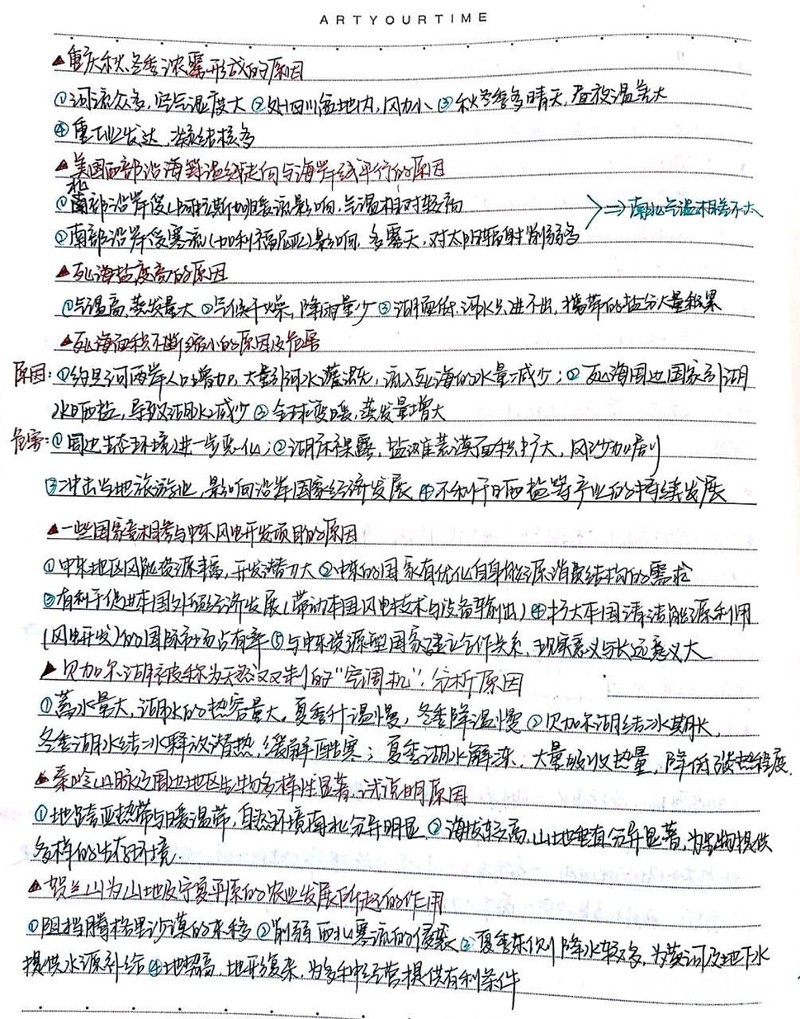 ARTYOURTIME
▲重庆秋冬季浓雾形成的原因
①河流众多,空气湿度大 ②处四川盆地内,风力小 ③秋冬季多晴天,昼夜温差大
④重工业发达,凝结核多
▲美国西部沿海等温线走向与海岸线平行的原因
①北部沿岸受阿拉斯加暖流影响,气温相对较高
②南部沿岸受寒流(加利福尼亚)影响,多雾天,对太阳辐射削弱多
⇒南北气温相差不大
▲死海盐度高的原因
①气温高,蒸发量大 ②气候干燥,降雨量少 ③湖面低,河水只进不出,携带的盐分大量积累
▲死海面积不断缩小的原因及危害
原因:①约旦河两岸人口增加,大量引河水灌溉,流入死海的水量减少;②死海周边国家引湖
水晒盐,导致湖水减少 ③全球变暖,蒸发量增大
危害:①周边生态环境进一步恶化;②湖床裸露,盐滩荒漠面积扩大,风沙加剧
③冲击当地旅游业,影响沿岸国家经济发展 ④不利于晒盐等产业的持续发展
▲一些国家竞相参与中东风电开发项目的原因
①中东地区风能资源丰富,开发潜力大 ②中东的国家有优化自身能源消费结构的需求
③有利于促进本国外向经济发展(带动本国风电技术与设备输出) ④扩大本国清洁能源利用
(风电开发)的国际市场占有率 ⑤与中东资源型国家建立合作关系,现实意义与长远意义大
▲贝加尔湖被称为天然双制的“空调机”,分析原因
①蓄水量大,湖水的热容量大,夏季升温慢,冬季降温慢 ②贝加尔湖结冰期长,
冬季湖水结冰释放潜热,缓解酷寒;夏季湖水解冻,大量吸收热量,降低炎热程度.
▲秦岭山脉及周边地区生物多样性显著,试说明原因
①地跨亚热带与暖温带,自然环境南北分异明显 ②海拔较高,山地垂直分异显著,为生物提供
多样的生态环境.
▲贺兰山为山地及宁夏平原的农业发展所起的作用
①阻挡腾格里沙漠的东移 ②削弱西北寒流的侵袭 ③夏季东侧降水较多,为黄河及地下水
提供水源补给 ④地势高,地形复杂,为多种经营提供有利条件